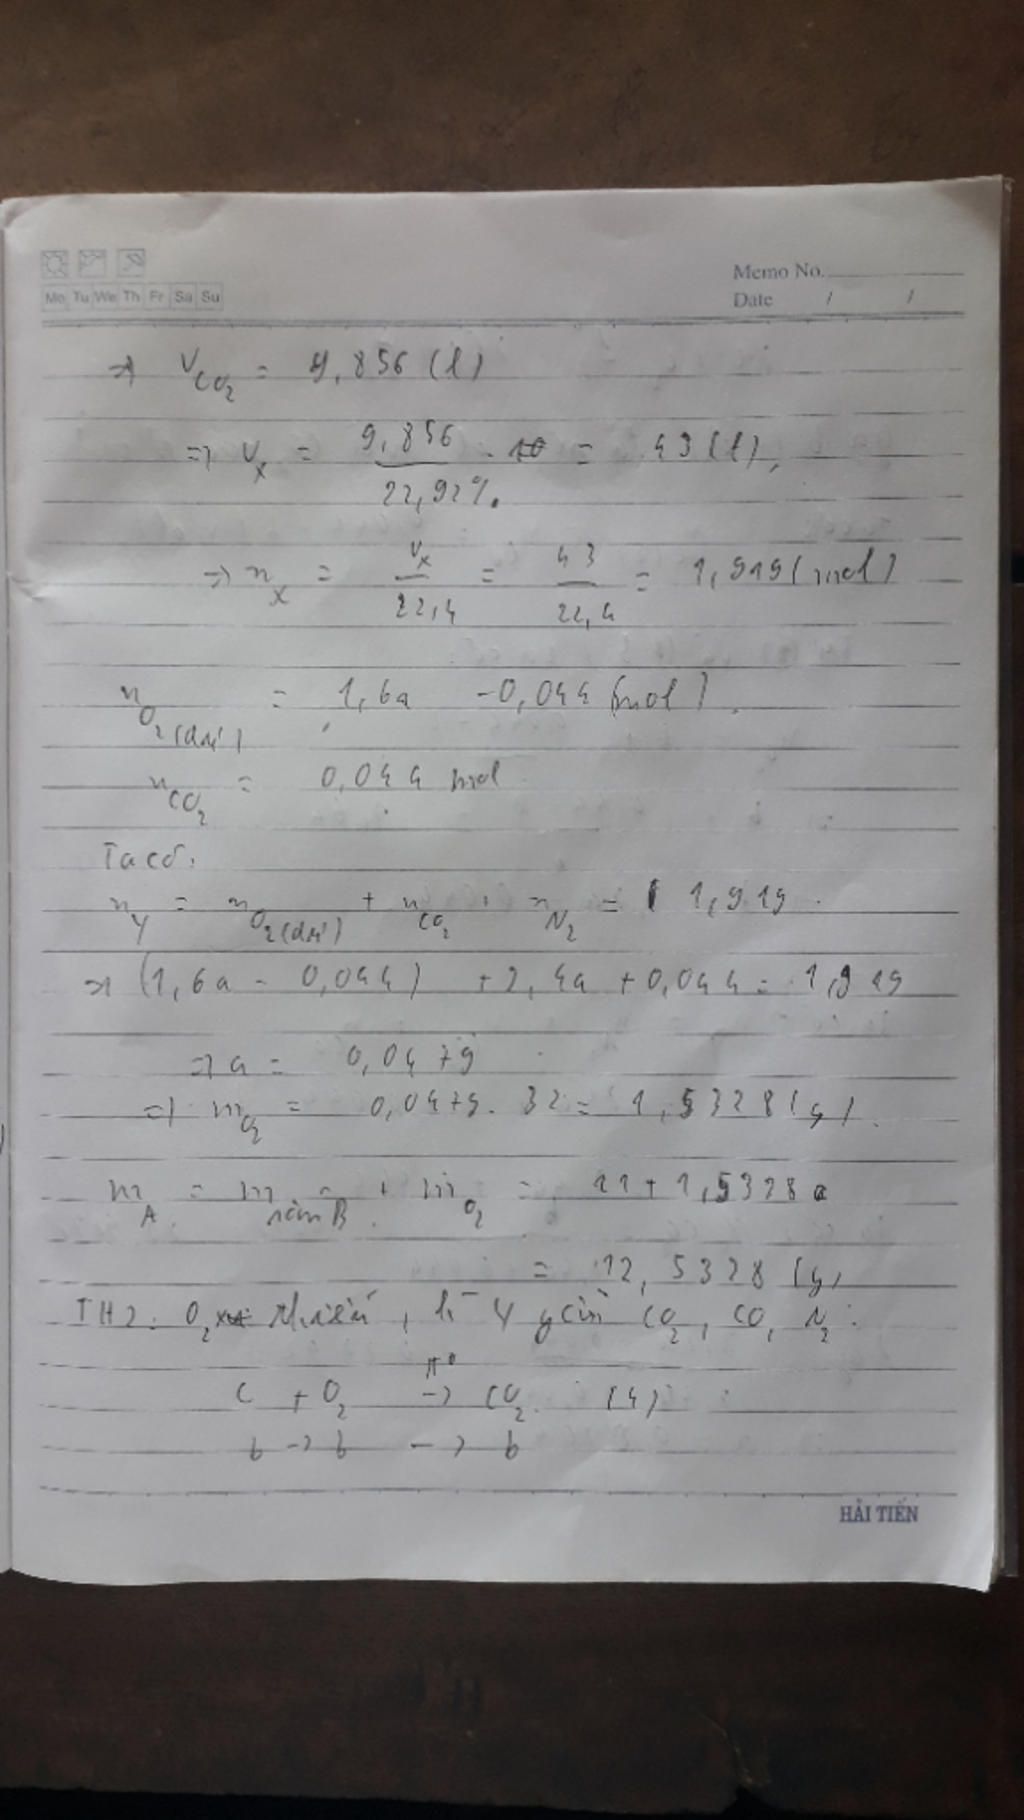 Memo No.
Mo Tu We Th Fr Sa Su
Date / /
=> V CO2 = 9,856 (l)
=> Vx = 9,856 / 22,92% = 43 (l),
=> nx = Vx / 22,4 = 43 / 22,4 = 1,919 (mol)
n O2 (dư) = 1,6a - 0,044 (mol).
n CO2 = 0,044 mol
Ta có:
nY = n O2 (dư) + n CO2 + n N2 = 1,919.
=> (1,6a - 0,044) + 2,4a + 0,044 = 1,919
=> a = 0,0479
=> m O2 = 0,0479. 32 = 1,5328 (g).
m A = m rắn B + m O2 = 11 + 1,5328
= 12,5328 (g)
TH2: O2 thiếu, Y gồm CO2, CO, N2.
C + O2 t° -> CO2. (4)
b -> b -> b
HẢI TIẾN